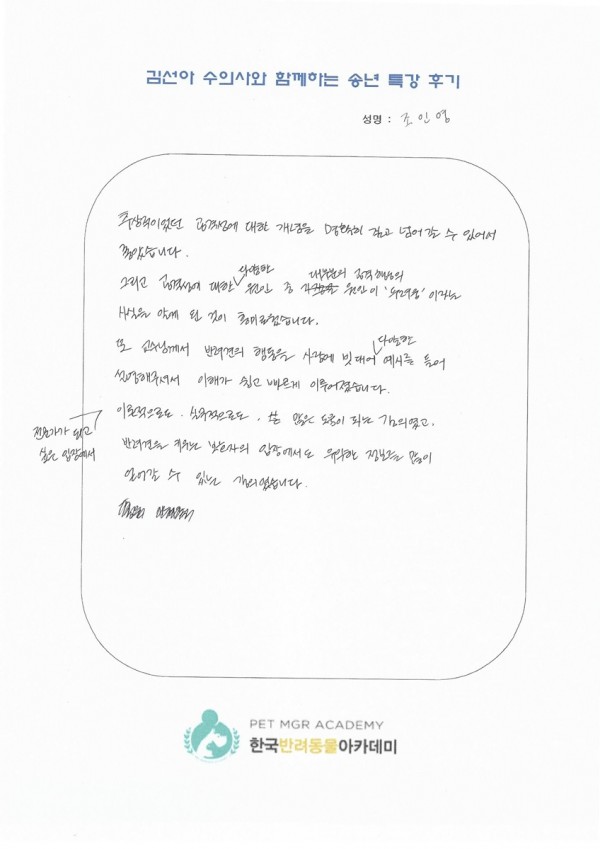 김선아 수의사와 함께하는 송년 특강 후기
성명 : 조인영
추상적이었던 공격성에 대한 개념을 명확히 잡고 넘어갈 수 있어서
좋았습니다.
그리고 공격성에 대한 다양한 원인 중 대부분의 공격행동의 원인이 '두려움' 이라는
사실을 알게 된 것이 흥미로웠습니다.
또 교수님께서 반려견의 행동을 사람에 빗대어 다양한 예시를 들어
설명해주셔서 이해가 쉽고 빠르게 이루어졌습니다.
전문가가 되고
싶은 입장에서
이론적으로도, 실무적으로도, 많은 도움이 되는 강의였고,
반려견을 키우는 보호자의 입장에서도 유익한 정보를 많이
얻어갈 수 있는 강의였습니다.
PET MGR ACADEMY
한국반려동물아카데미